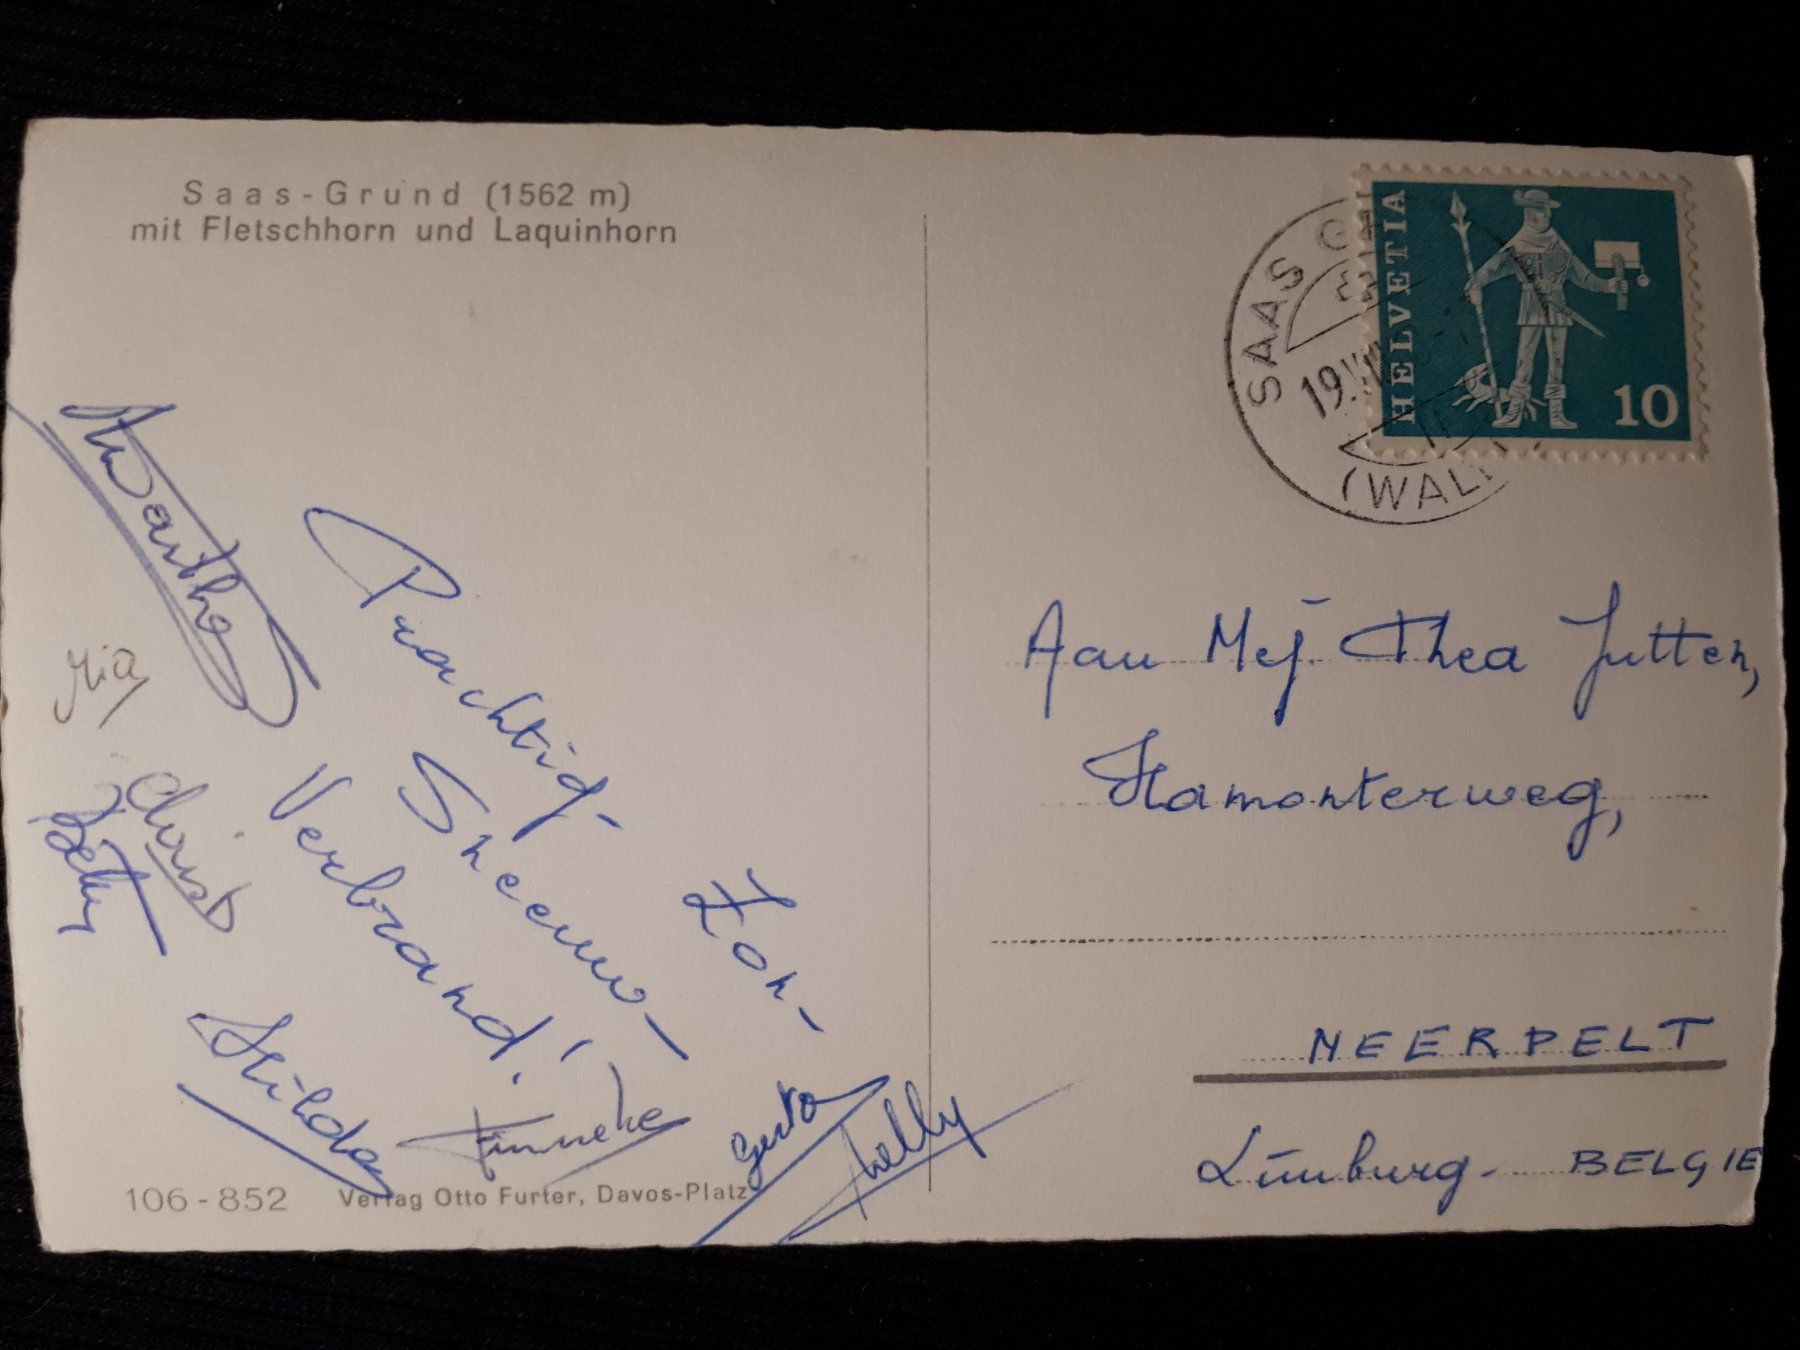 Saas-Grund (1562 m)
mit Fletschhorn und Laquinhorn
HELVETIA
10
SAAS
19.
(WALL
Martha
Mia
Christ
Betty
Prachtig-
Sneeuw-
Zon-
Verbrand!
Hilda
Tinneke
Gerta
Nelly
Aan Mej. Thea Jutten,
Hamonterweg,
NEERPELT
Limburg- BELGIE
106-852 Verlag Otto Furter, Davos-Platz